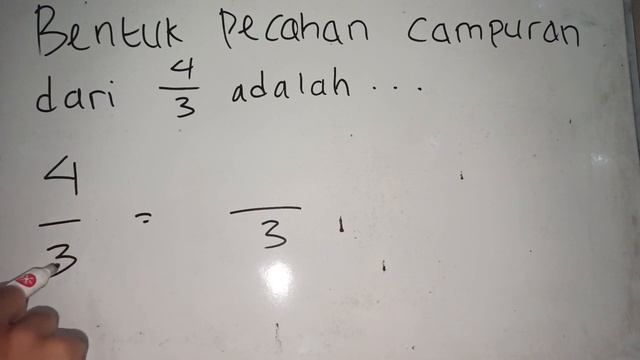 Bentuk Pecahan campuran
dari 4/3 adalah ...
4/3 = /3